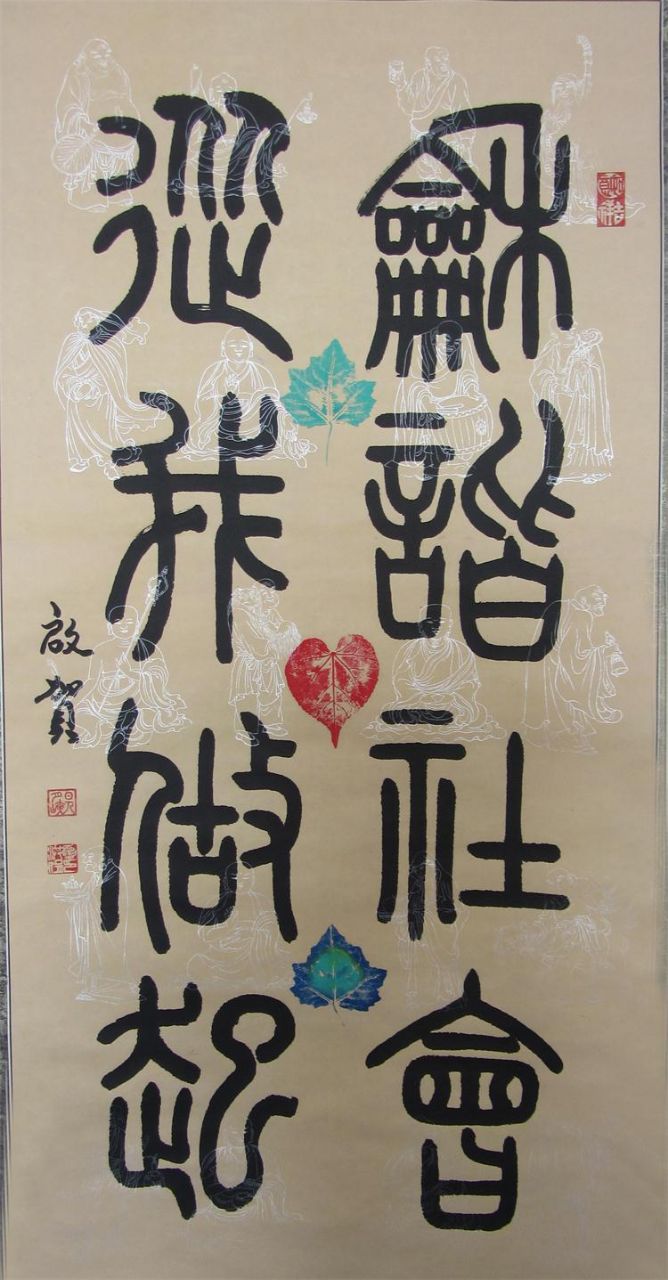 龢諧社會
從我做起
啟賀